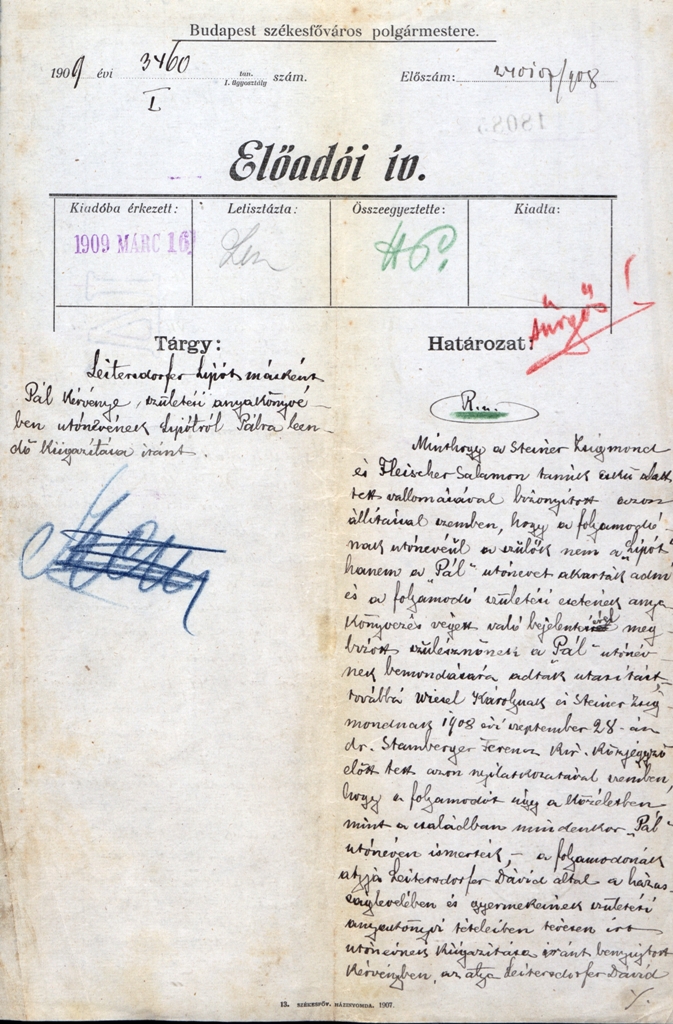 Budapest székesfőváros polgármestere.
1909 évi 3460 tan. I. ügyosztály szám.
I
Előszám: /908
Előadói ív.
Kiadóba érkezett:
Letisztázta:
Összeegyeztette:
Kiadta:
1909 MÁRC 16
sürgős!
Tárgy:
Leitersdorfer Lipót másként
Pál kérvénye, születési anyakönyvé-
ben utónevének Lipótról Pálra leen-
dő kiigazítása iránt.
Határozat:
Minthogy a Steiner Zsigmond
és Fleischer Salamon tanúk eskü alatt
tett vallomásával bizonyított azon
állításával szemben, hogy a folyamodó-
nak utónevéül a szülők nem a "Lipót"
hanem a "Pál" utónevet akarták adni
és a folyamodó születési esetének anya
könyvezés végett való meg
bízott szülésznőnek a "Pál" utónév-
nek bemondására adtak utasítást,
továbbá Wiesel Károlynak és Steiner Zsig
mondnak 1908 évi szeptember 28-án
dr. Stamberger Ferencz kir. közjegyző
előtt tett azon nyilatkozatával szemben,
hogy a folyamodót úgy a közéletben,
mint a családban mindenkor "Pál"
utónéven ismerték, - a folyamodónak
atyja Leitersdorfer Dávid által a házas
ságlevelében és gyermekeinek születési
anyakönyvi tételeiben tévesen írt
utónévnek kiigazítása iránt benyújtott
kérvényben, az atya Leitersdorfer Dávid
./.
13. SZÉKESFŐV. HÁZINYOMDA. 1907.